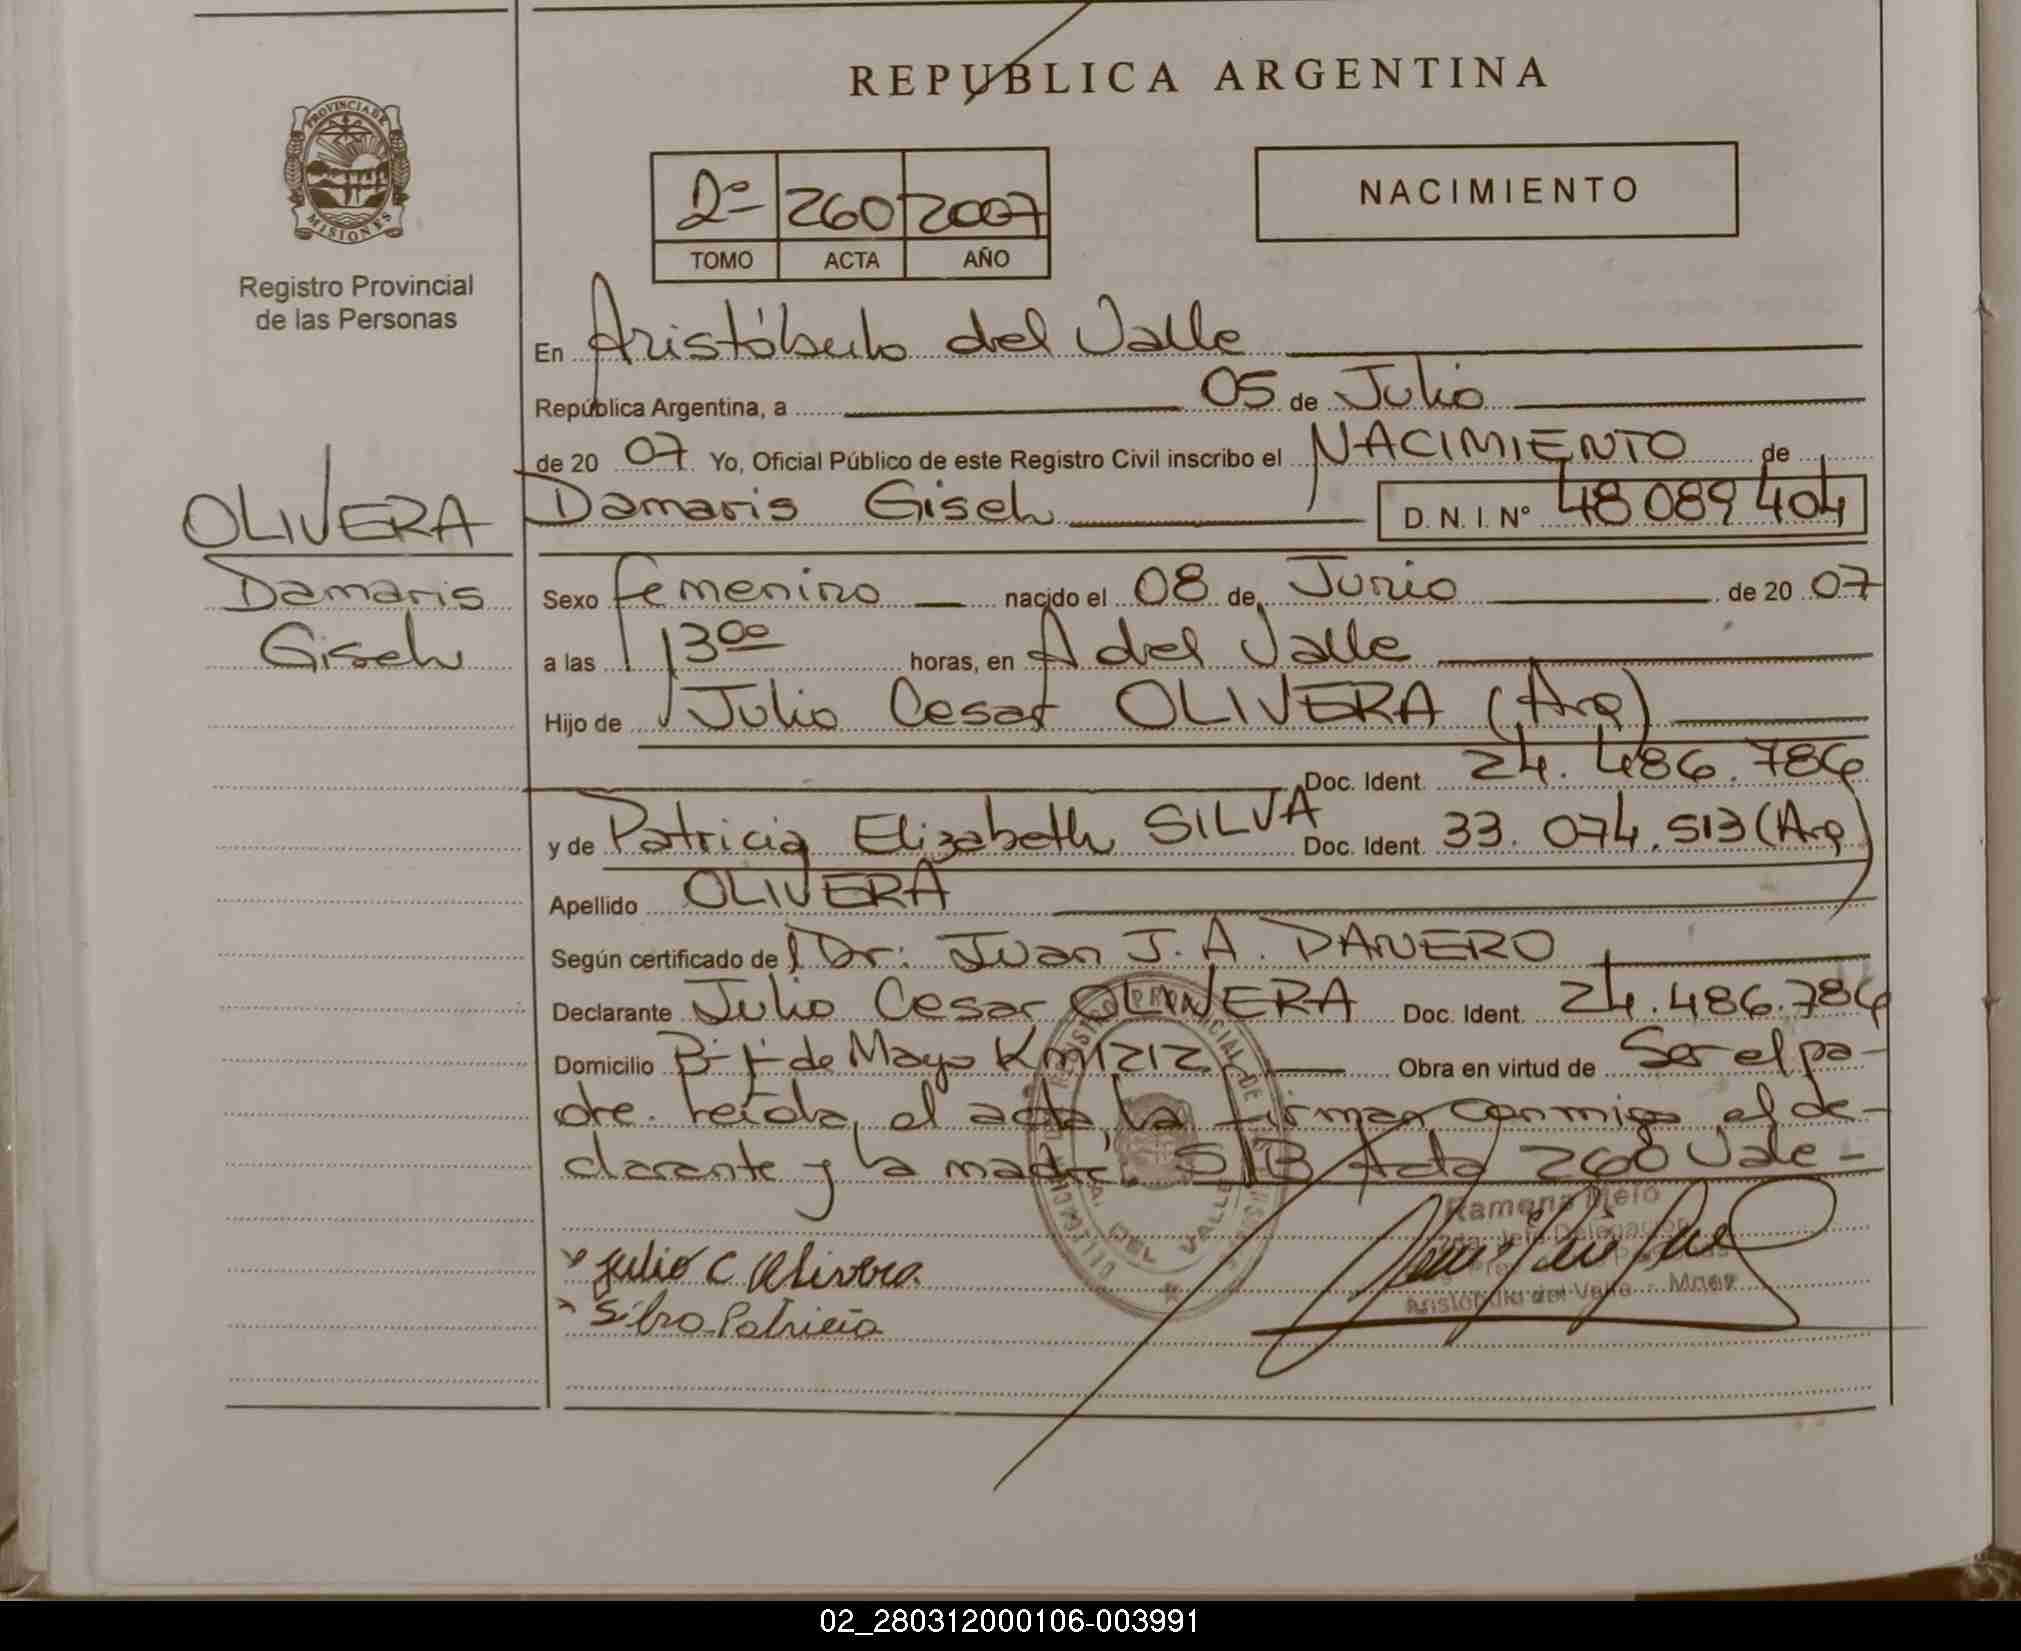 REPUBLICA ARGENTINA
PROVINCIA DE MISIONES
Registro Provincial
de las Personas
2º 260 2007
TOMO ACTA AÑO
NACIMIENTO
En Aristóbulo del Valle
República Argentina, a 05 de Julio
de 20 07 Yo, Oficial Público de este Registro Civil inscribo el NACIMIENTO de
OLIVERA
Damaris
Gisela
Damaris Gisela D. N. I. Nº 48 089 404
Sexo femenino nacido el 08 de Junio de 20 07
a las 13 00 horas, en A del Valle
Hijo de Julio Cesar OLIVERA (Arg)
Doc. Ident. 24.486.786
y de Patricia Elizabeth SILVA Doc. Ident. 33.074.513 (Arg)
Apellido OLIVERA
Según certificado del Dr: Juan J. A. DANERO
Declarante Julio Cesar OLIVERA Doc. Ident. 24.486.786
Domicilio Bº 1º de Mayo Km 1212 Obra en virtud de Ser el pa-
dre. Leída el acta, la firman conmigo el de-
clarante y la madre. S/B Acta 260 Vale-
Ramona
Aristóbulo del Valle - Mnes
Julio C Olivera
Silva Patricia
DEL VALLE
02_280312000106-003991